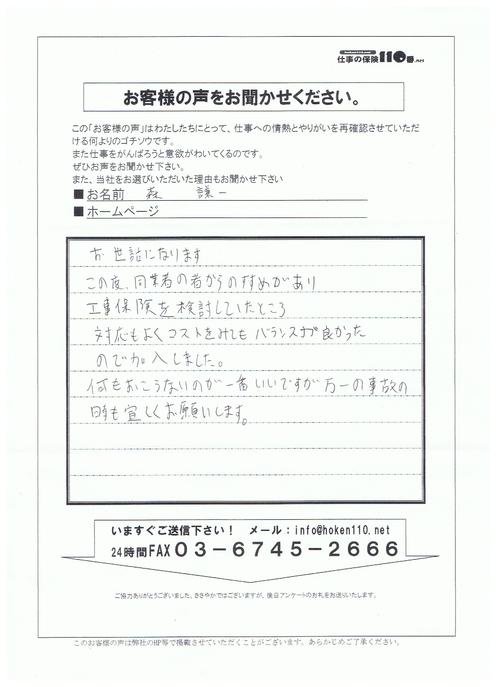 仕事の保険110番.net
お客様の声をお聞かせください。
この「お客様の声」はわたしたちにとって、仕事への情熱とやりがいを再確認させていただ
ける何よりのゴチソウです。
また仕事をがんばろうと意欲がわいてくるのです。
ぜひお声をお聞かせ下さい。
また、当社をお選びいただいた理由もお聞かせ下さい
■お名前 森 謙一
■ホームページ
お世話になります
この度、同業者の者からのすすめがあり
工事保険を検討していたところ
対応もよくコストをみてもバランスが良かった
ので加入しました。
何もおこらないのが一番いいですが万一の事故の
時も宜しくお願いします。
いますぐご送信下さい! メール:info@hoken110.net
24時間FAX 03-6745-2666
ご協力ありがとうございました。ささやかではございますが、後日アンケートのお礼をお送りいたします。
このお客様の声は弊社のHP等で掲載させていただくことがございます。あらかじめご了承ください。